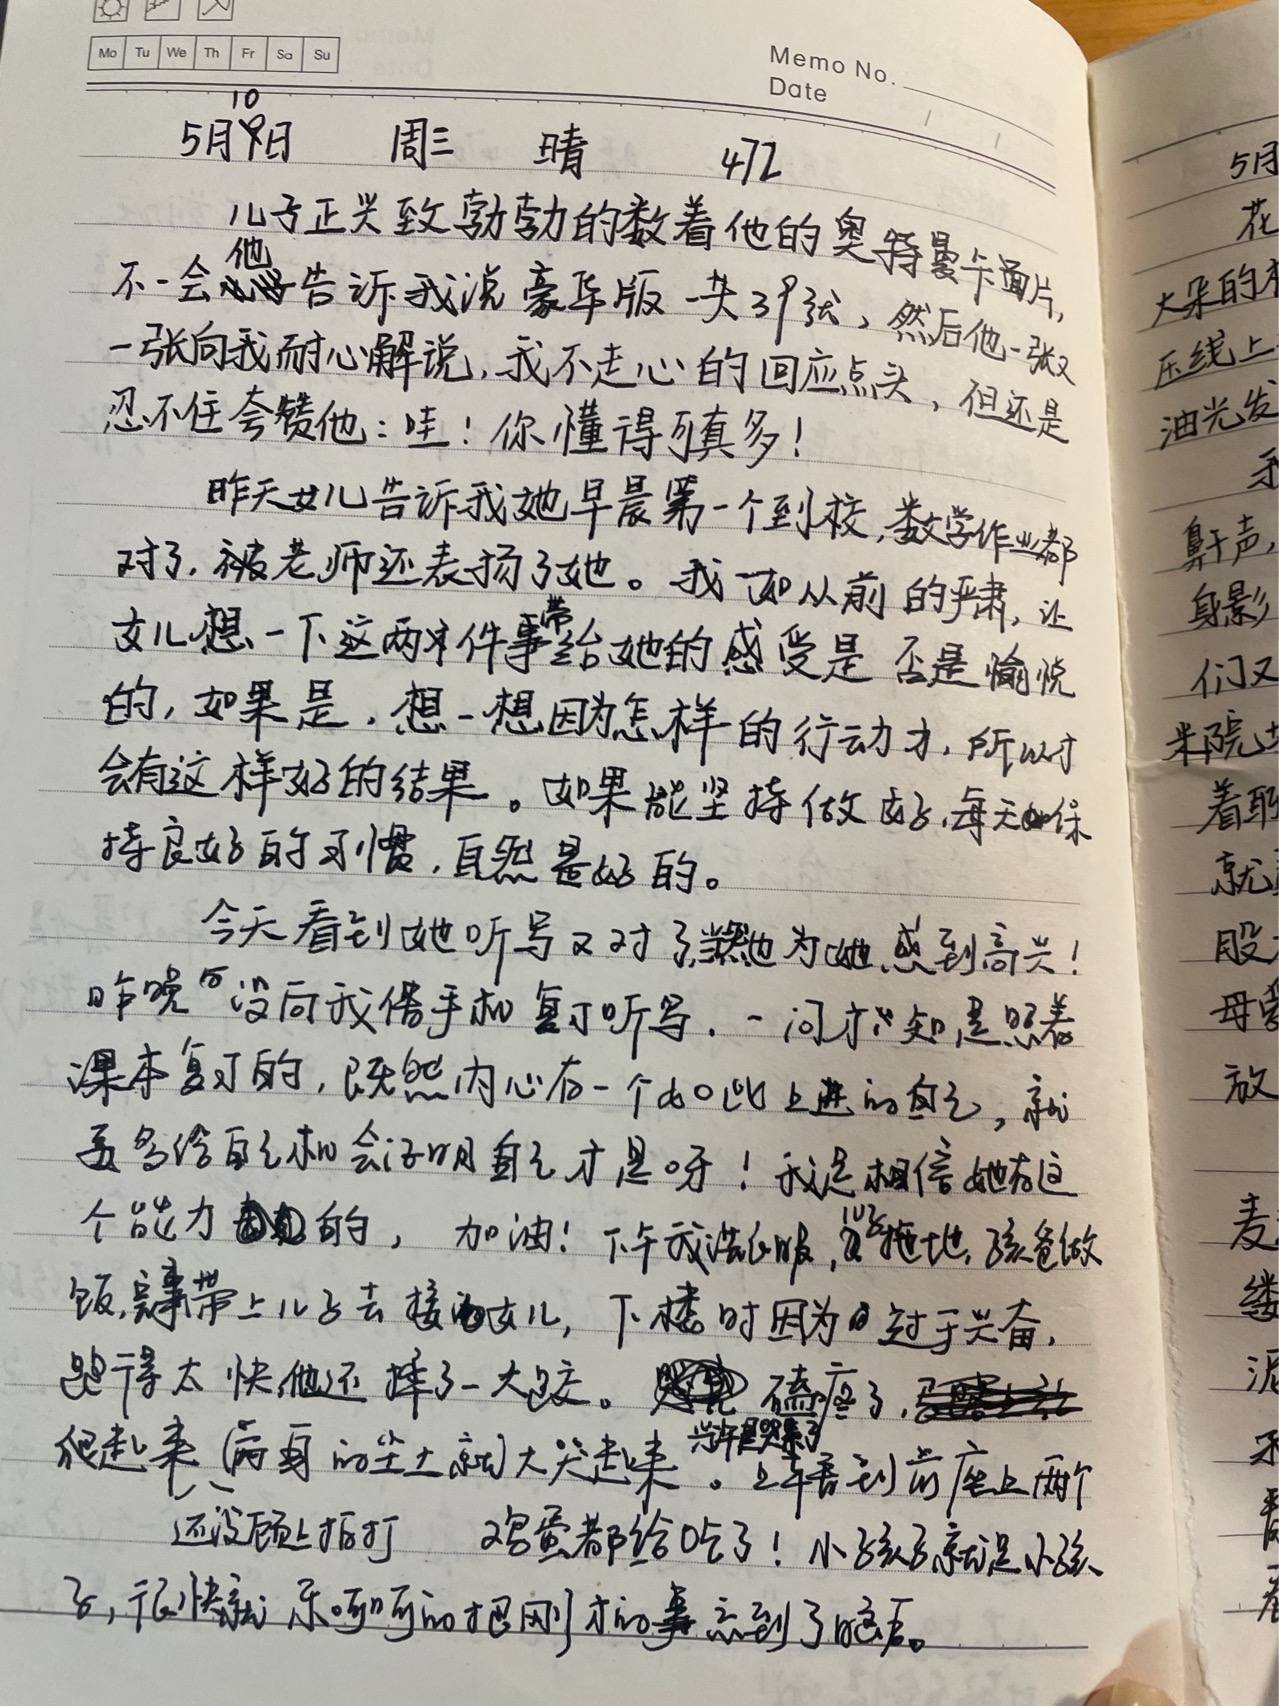 Mo Tu We Th Fr Sa Su
Memo No.
Date
5月10日 周三 晴 472
儿子正兴致勃勃的数着他的奥特曼卡片,
不一会他告诉我说豪华版一共39张、然后他一张又
一张向我耐心解说,我不走心的回应点头,但还是
忍不住夸赞他:哇!你懂得可真多!
昨天女儿告诉我她早晨第一个到校,数学作业都
对了,被老师还表扬了她。我一如从前的严肃,让
女儿想一下这两件事带给她的感受是否是愉悦
的,如果是,想一想因为怎样的行动力,所以才
会有这样好的结果。如果能坚持做好,每天保
持良好的习惯,自然是好的。
今天看到她听写又对了,当然也为她感到高兴!
昨晚没向我借手机复习听写,一问才知是照着
课本复习的,既然内心有一个如此上进的自己,就
要多给自己机会证明自己才是呀!我是相信她有这
个能力的,加油!下午我洗衣服,儿子拖地,孩爸做
饭,完事带上儿子去接女儿,下楼时因为过于兴奋,
跑得太快他还摔了一大跤。磕疼了,
爬起来(两身的尘土就)大哭起来。上车看到前座上两个
兴许是哭累了
还没顾上拍打 鸡蛋都给吃了!小孩子就是小孩
子,很快就乐呵呵的把刚才的事忘到了脑后。
5月
花
大朵的
压线上
油光发
鼻干声,
身影
们又
米院
着
就
股
母
放
麦
缕
泥